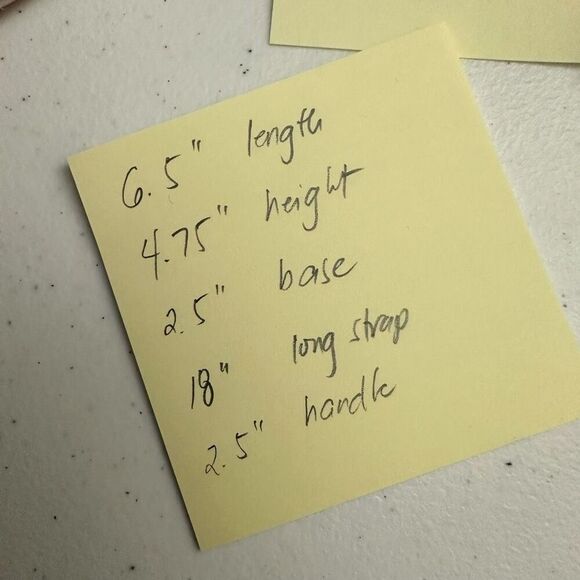 6.5" length
4.75" height
2.5" base
18" long strap
2.5" handle